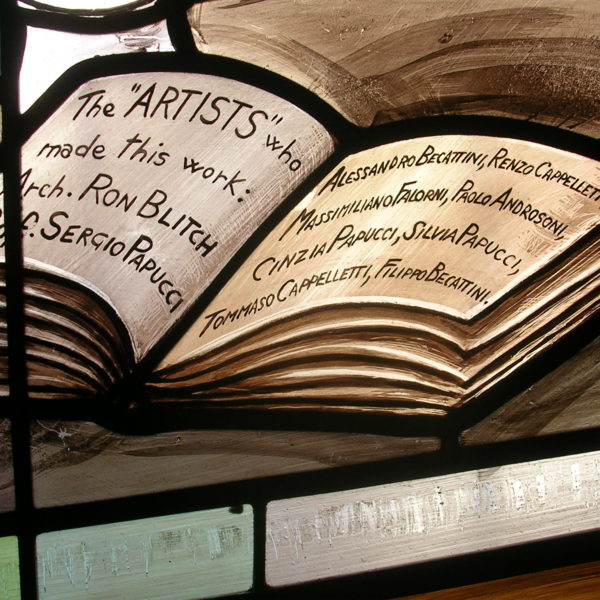 The "ARTISTS" who
made this work:
Arch. RON BLITCH
SERGIO PAPUCCI
ALESSANDRO BECATTINI, RENZO CAPPELLETTI
MASSIMILIANO FALORNI, PAOLO ANDROSONI,
CINZIA PAPUCCI, SILVIA PAPUCCI,
TOMMASO CAPPELLETTI, FILIPPO BECATTINI.